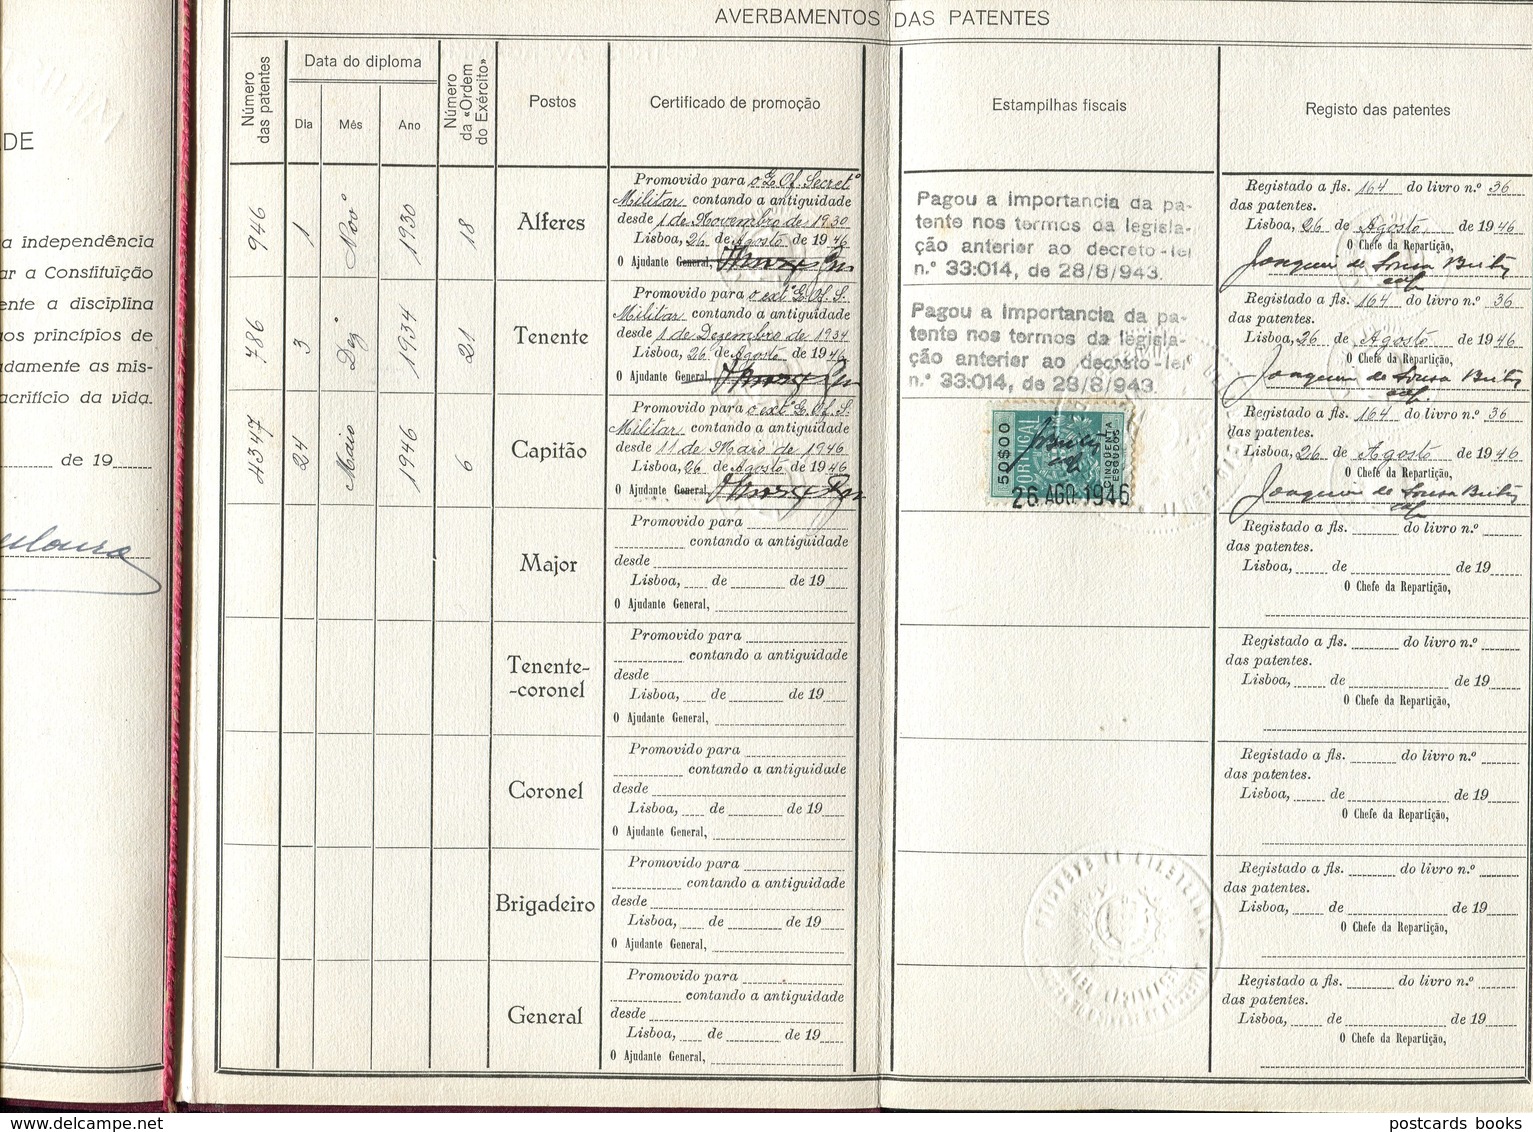 AVERBAMENTOS DAS PATENTES
DE
a independência
ar a Constituição
ente a disciplina
aos princípios de
damente as mis-
acrifício da vida.
de 19
Número das patentes
Data do diploma
Dia
Mês
Ano
Número da «Ordem do Exército»
Postos
Certificado de promoção
Estampilhas fiscais
Registo das patentes
946
1
Novº
1930
18
Alferes
Promovido para o Q. Of. Secretº
Militar contando a antiguidade
desde 1 de Novembro de 1930
Lisboa, 26 de Agosto de 1946
O Ajudante General,
Pagou a importancia da pa-
tente nos termos da legisla-
ção anterior ao decreto-lei
n.º 33:014, de 28/8/943.
Registado a fls. 164 do livro n.º 36
das patentes.
Lisboa, 26 de Agosto de 1946
O Chefe da Repartição,
Joaquim de Sousa
786
3
Dezº
1934
21
Tenente
Promovido para o extº Q. Of. S.
Militar contando a antiguidade
desde 1 de Dezembro de 1934
Lisboa, 26 de Agosto de 1946
O Ajudante General,
Pagou a importancia da pa-
tente nos termos da legisla-
ção anterior ao decreto-lei
n.º 33:014, de 28/8/943.
Registado a fls. 164 do livro n.º 36
das patentes.
Lisboa, 26 de Agosto de 1946
O Chefe da Repartição,
Joaquim de Sousa
4347
24
Maio
1946
6
Capitão
Promovido para o extº Q. Of. S.
Militar contando a antiguidade
desde 11 de Maio de 1946
Lisboa, 26 de Agosto de 1946
O Ajudante General,
50$00
PORTUGAL
CINQUENTA
ESCUDOS
26 AGO 1946
Registado a fls. 164 do livro n.º 36
das patentes.
Lisboa, 26 de Agosto de 1946
O Chefe da Repartição,
Joaquim de Sousa
Major
Promovido para
contando a antiguidade
desde
Lisboa, de de 19
O Ajudante General,
Registado a fls. do livro n.º
das patentes.
Lisboa, de de 19
O Chefe da Repartição,
Tenente-
-coronel
Promovido para
contando a antiguidade
desde
Lisboa, de de 19
O Ajudante General,
Registado a fls. do livro n.º
das patentes.
Lisboa, de de 19
O Chefe da Repartição,
Coronel
Promovido para
contando a antiguidade
desde
Lisboa, de de 19
O Ajudante General,
Registado a fls. do livro n.º
das patentes.
Lisboa, de de 19
O Chefe da Repartição,
Brigadeiro
Promovido para
contando a antiguidade
desde
Lisboa, de de 19
O Ajudante General,
Registado a fls. do livro n.º
das patentes.
Lisboa, de de 19
O Chefe da Repartição,
General
Promovido para
contando a antiguidade
desde
Lisboa, de de 19
O Ajudante General,
Registado a fls. do livro n.º
das patentes.
Lisboa, de de 19
O Chefe da Repartição,
postcards books